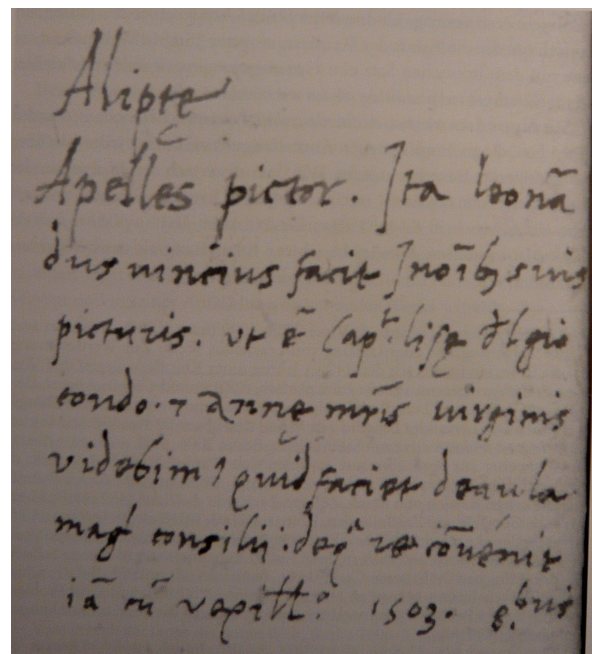 Aliptę
Apelles pictor. Ita leonā
dus uincius facit Ino͞ib3 suis
picturis. ut ē Capͭ. lisę d̄l gio
condo. ⁊ Annę mr̄is uirginis
videbimꝰ quid faciet de aula
mag̍ consilij. de q̍ re cōuēnit
iā cū vexillº. 1503. 8.bris